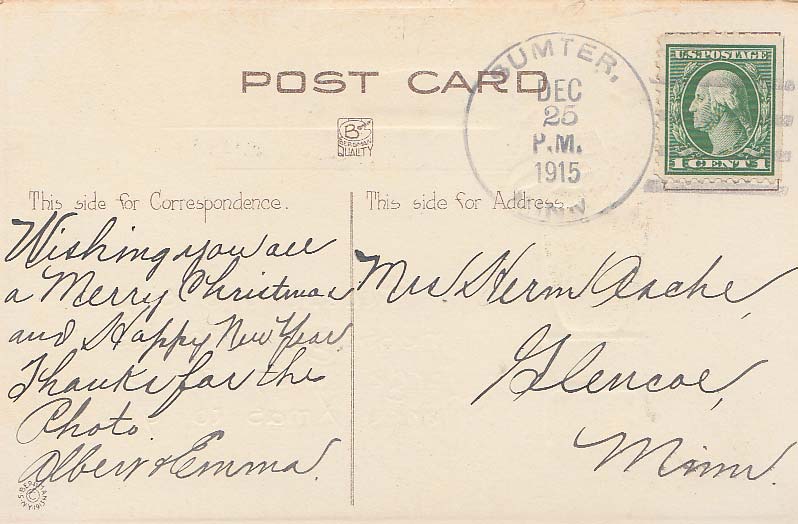 POST CARD
SUMTER,
DEC
25
P.M.
1915
MINN
U.S. POSTAGE
1 CENT 1
BERGMAN
QUALITY
This side for Correspondence.
Wishing you all
a Merry Christmas
and Happy New Year
Thanks for the
Photo.
Albert & Emma.
This side for Address.
Mrs. Herm
Glencoe,
Minn.